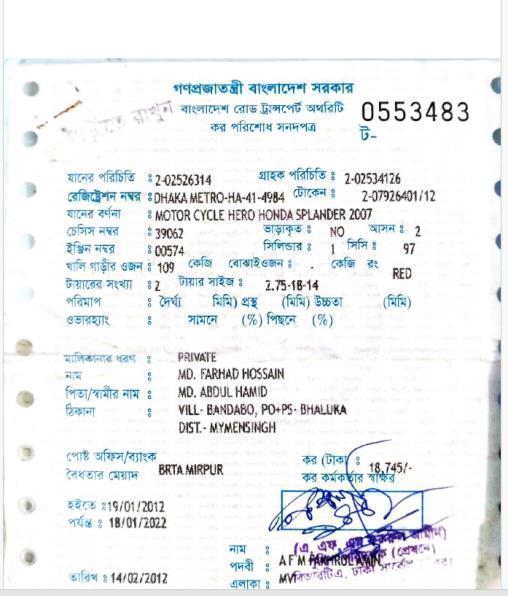 গণপ্রজাতন্ত্রী বাংলাদেশ সরকার
বাংলাদেশ রোড ট্রান্সপোর্ট অথরিটি
0553483
কর পরিশোধ সনদপত্র
ট-
রাখুন
যানের পরিচিতি : 2-02526314 গ্রাহক পরিচিতি : 2-02534126
রেজিষ্ট্রেশন নম্বর : DHAKA METRO-HA-41-4984 টোকেন : 2-07926401/12
যানের বর্ণনা : MOTOR CYCLE HERO HONDA SPLANDER 2007
চেসিস নম্বর : 39062 ভাড়াকৃত : NO আসন : 2
ইঞ্জিন নম্বর : 00574 সিলিন্ডার : 1 সিসি : 97
খালি গাড়ীর ওজন : 109 কেজি বোঝাইওজন : . কেজি রং RED
টায়ারের সংখ্যা : 2 টায়ার সাইজ : 2.75-18-14
পরিমাপ : দৈর্ঘ্য মিমি) প্রস্থ (মিমি) উচ্চতা (মিমি)
ওভারহ্যাং : সামনে (%) পিছনে (%)
মালিকানার ধরণ : PRIVATE
নাম : MD. FARHAD HOSSAIN
পিতা/স্বামীর নাম : MD. ABDUL HAMID
ঠিকানা : VILL- BANDABO, PO+PS- BHALUKA
DIST.- MYMENSINGH
পোষ্ট অফিস/ব্যাংক কর (টাকা) : 18,745/-
বৈধতার মেয়াদ BRTA MIRPUR কর কর্মকর্তার স্বাক্ষর
হইতে : 19/01/2012
পর্যন্ত : 18/01/2022
নাম :
পদবী : A F M FAKHRUL AMIN
তারিখ : 14/02/2012 এলাকা : MVI